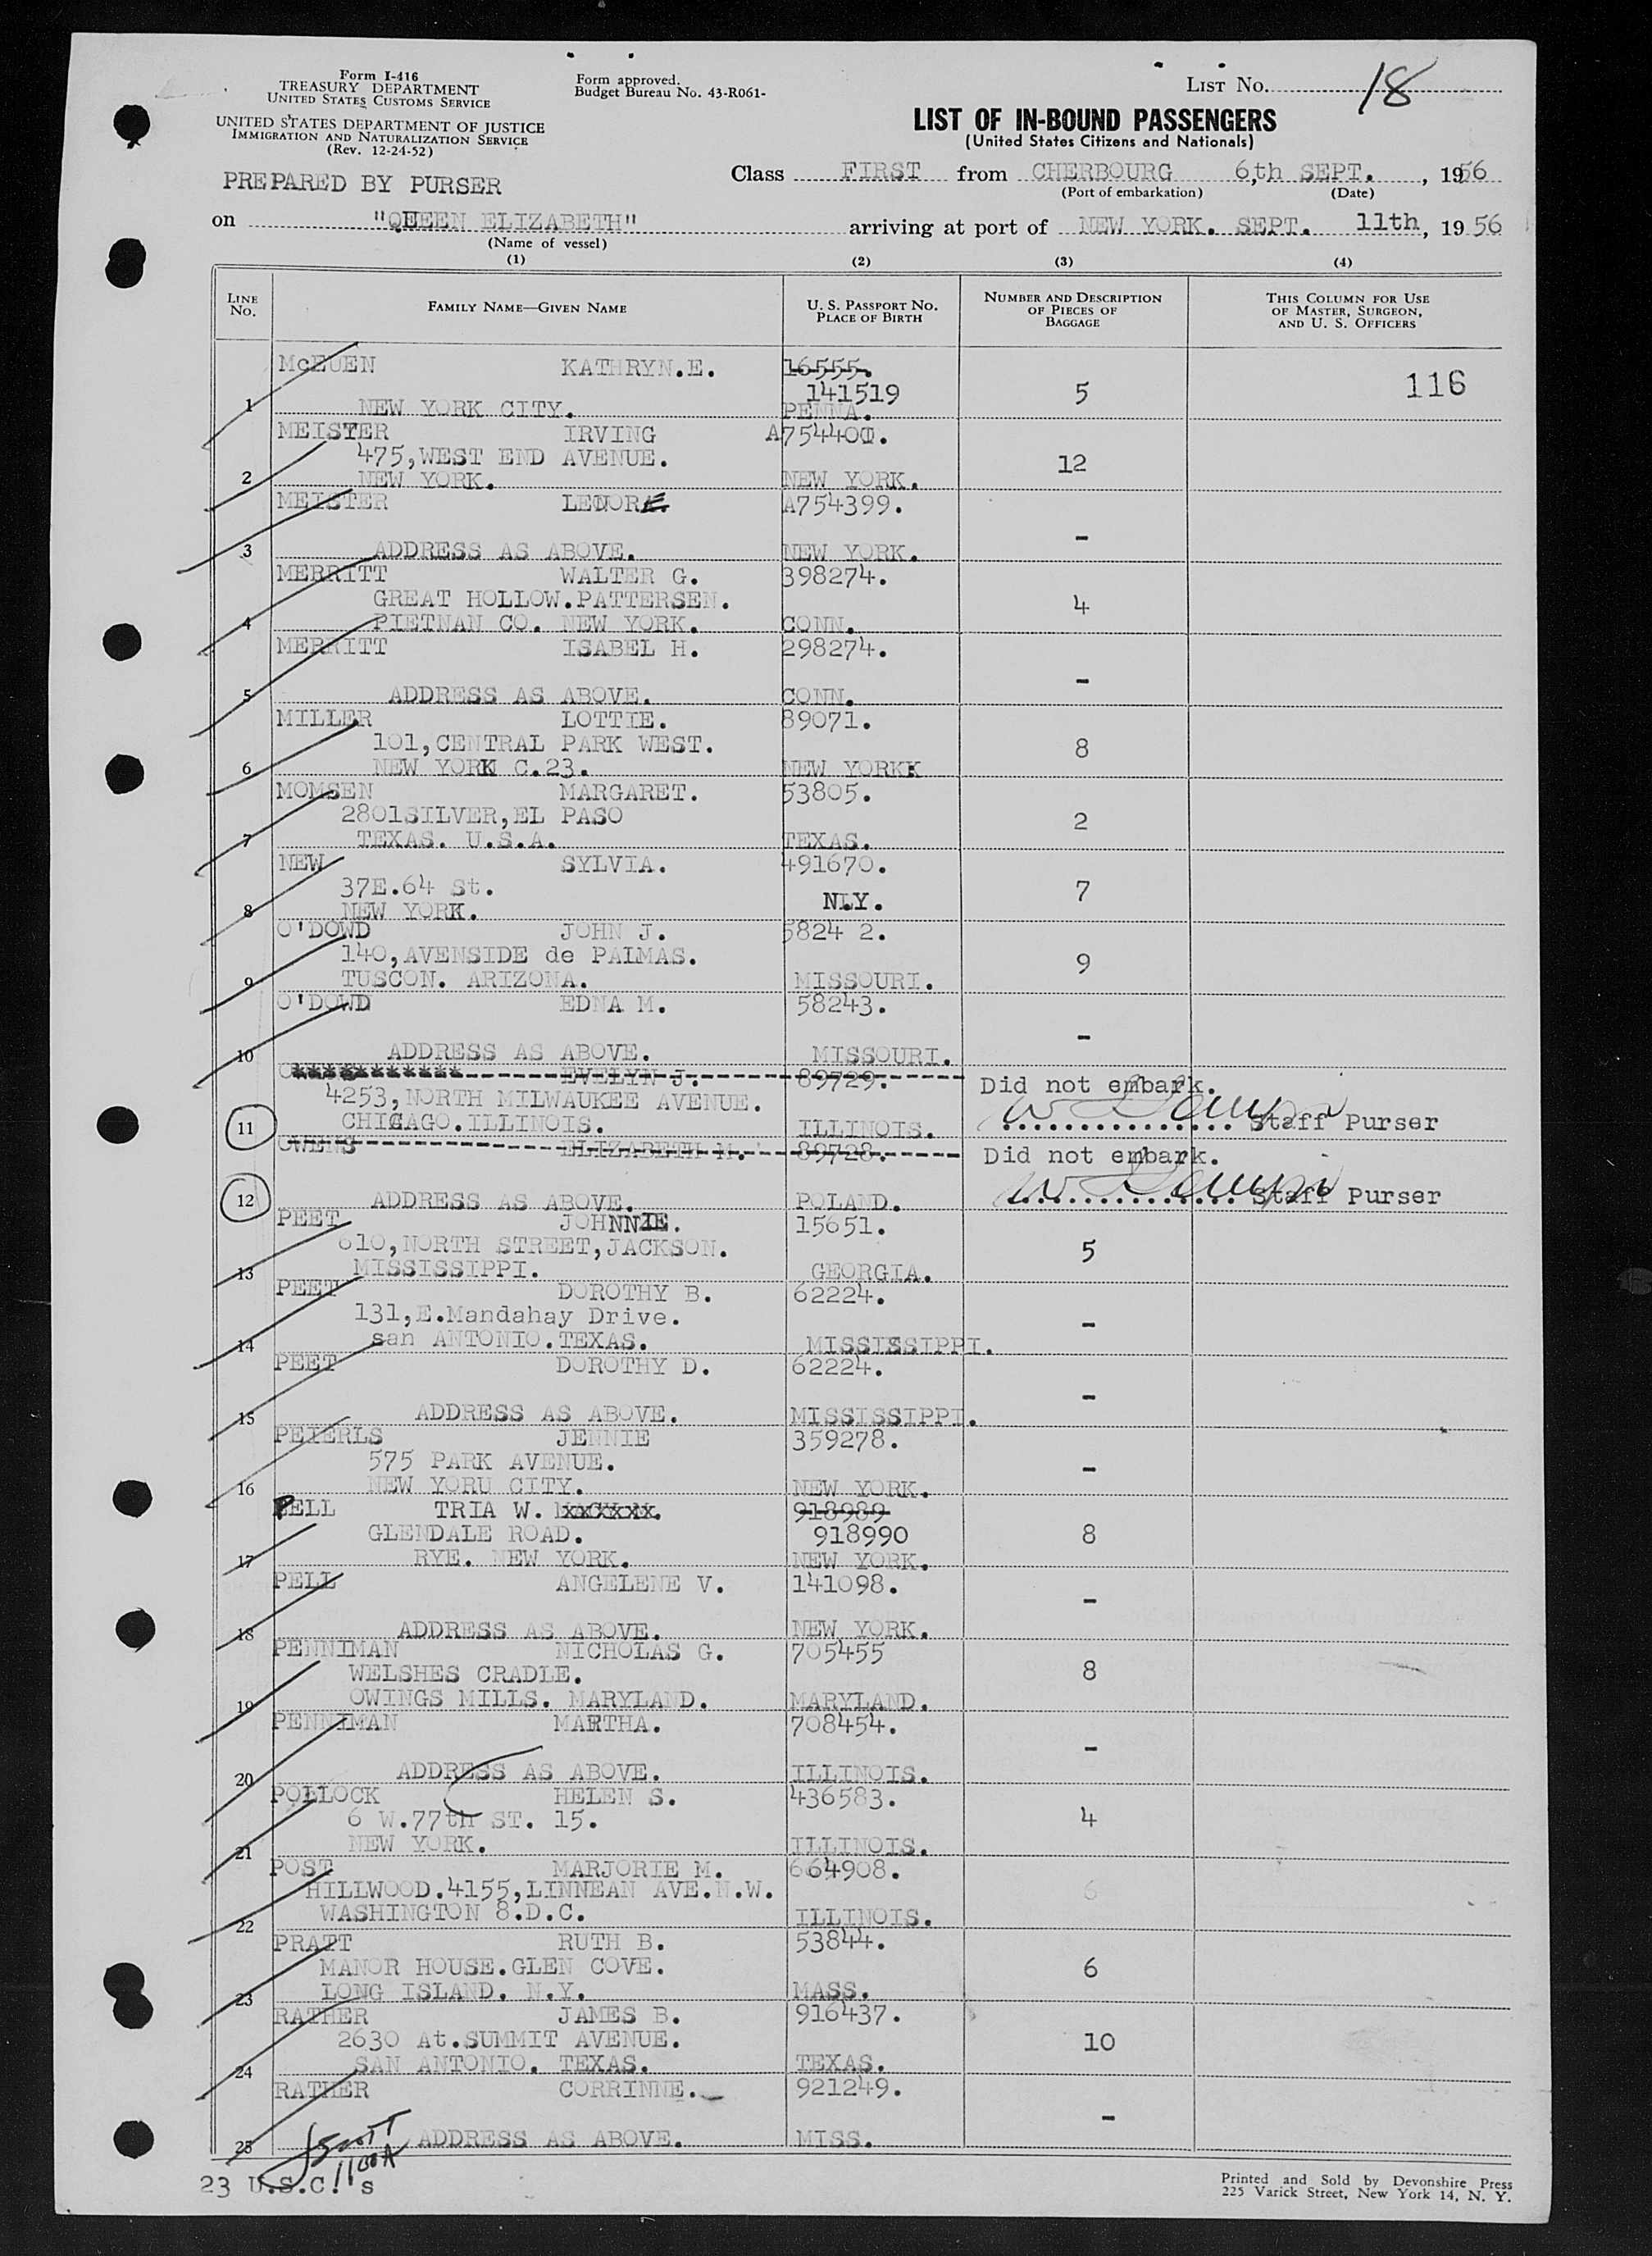 Form I-416
TREASURY DEPARTMENT
UNITED STATES CUSTOMS SERVICE
UNITED STATES DEPARTMENT OF JUSTICE
IMMIGRATION AND NATURALIZATION SERVICE
(Rev. 12-24-52)
Form approved.
Budget Bureau No. 43-R061-
LIST No. 18
LIST OF IN-BOUND PASSENGERS
(United States Citizens and Nationals)
PREPARED BY PURSER
Class FIRST from CHERBOURG 6,th SEPT., 1956
(Port of embarkation) (Date)
on "QUEEN ELIZABETH" arriving at port of NEW YORK. SEPT. 11th, 19 56
(Name of vessel)
(1) (2) (3) (4)
LINE No. FAMILY NAME—GIVEN NAME U. S. PASSPORT NO. PLACE OF BIRTH NUMBER AND DESCRIPTION OF PIECES OF BAGGAGE THIS COLUMN FOR USE OF MASTER, SURGEON, AND U. S. OFFICERS
McEUEN KATHRYN.E. 16555.
141519 5 116
1 NEW YORK CITY. PENNA.
MEISTER IRVING A754400.
475,WEST END AVENUE. 12
2 NEW YORK. NEW YORK.
MEISTER LENORE A754399.
-
3 ADDRESS AS ABOVE. NEW YORK.
MERRITT WALTER G. 398274.
GREAT HOLLOW.PATTERSEN. 4
4 PIETNAN CO. NEW YORK. CONN.
MERRITT ISABEL H. 298274.
-
5 ADDRESS AS ABOVE. CONN.
MILLER LOTTIE. 89071.
101,CENTRAL PARK WEST. 8
6 NEW YORK C.23. NEW YORKK
MOMSEN MARGARET. 53805.
2801SILVER,EL PASO 2
7 TEXAS. U.S.A. TEXAS.
NEW SYLVIA. 491670.
37E.64 St. N.Y. 7
8 NEW YORK.
O'DOWD JOHN J. 5824 2.
140,AVENSIDE de PALMAS. 9
9 TUSCON. ARIZONA. MISSOURI.
O'DOWD EDNA M. 58243.
-
10 ADDRESS AS ABOVE. MISSOURI.
EVELYN J. 89729. Did not embark.
4253,NORTH MILWAUKEE AVENUE.
11 CHICAGO.ILLINOIS. ILLINOIS. Staff Purser
OWENS ELIZABETH M. 89728. Did not embark.
12 ADDRESS AS ABOVE. POLAND. Staff Purser
PEET JOHNNIE. 15651.
610,NORTH STREET,JACKSON. 5
13 MISSISSIPPI. GEORGIA.
PEET DOROTHY B. 62224.
131,E.Mandahay Drive. -
14 san ANTONIO.TEXAS. MISSISSIPPI.
PEET DOROTHY D. 62224.
-
15 ADDRESS AS ABOVE. MISSISSIPPI.
PEIERLS JENNIE 359278.
575 PARK AVENUE. -
16 NEW YORU CITY. NEW YORK.
PELL TRIA W. 918989
GLENDALE ROAD. 918990 8
17 RYE. NEW YORK. NEW YORK.
PELL ANGELENE V. 141098.
-
18 ADDRESS AS ABOVE. NEW YORK.
PENNIMAN NICHOLAS G. 705455
WELSHES CRADLE. 8
19 OWINGS MILLS. MARYLAND. MARYLAND.
PENNIMAN MARTHA. 708454.
-
20 ADDRESS AS ABOVE. ILLINOIS.
POLLOCK HELEN S. 436583.
6 W.77th ST. 15. 4
21 NEW YORK. ILLINOIS.
POST MARJORIE M. 664908.
HILLWOOD.4155,LINNEAN AVE.N.W. 6
22 WASHINGTON 8.D.C. ILLINOIS.
PRATT RUTH B. 53844.
MANOR HOUSE.GLEN COVE. 6
23 LONG ISLAND. N.Y. MASS.
RATHER JAMES B. 916437.
2630 At.SUMMIT AVENUE. 10
24 SAN ANTONIO. TEXAS. TEXAS.
RATHER CORRINNE. 921249.
-
25 ADDRESS AS ABOVE. MISS.
23 U.S.C.'s
Printed and Sold by Devonshire Press
225 Varick Street, New York 14, N. Y.